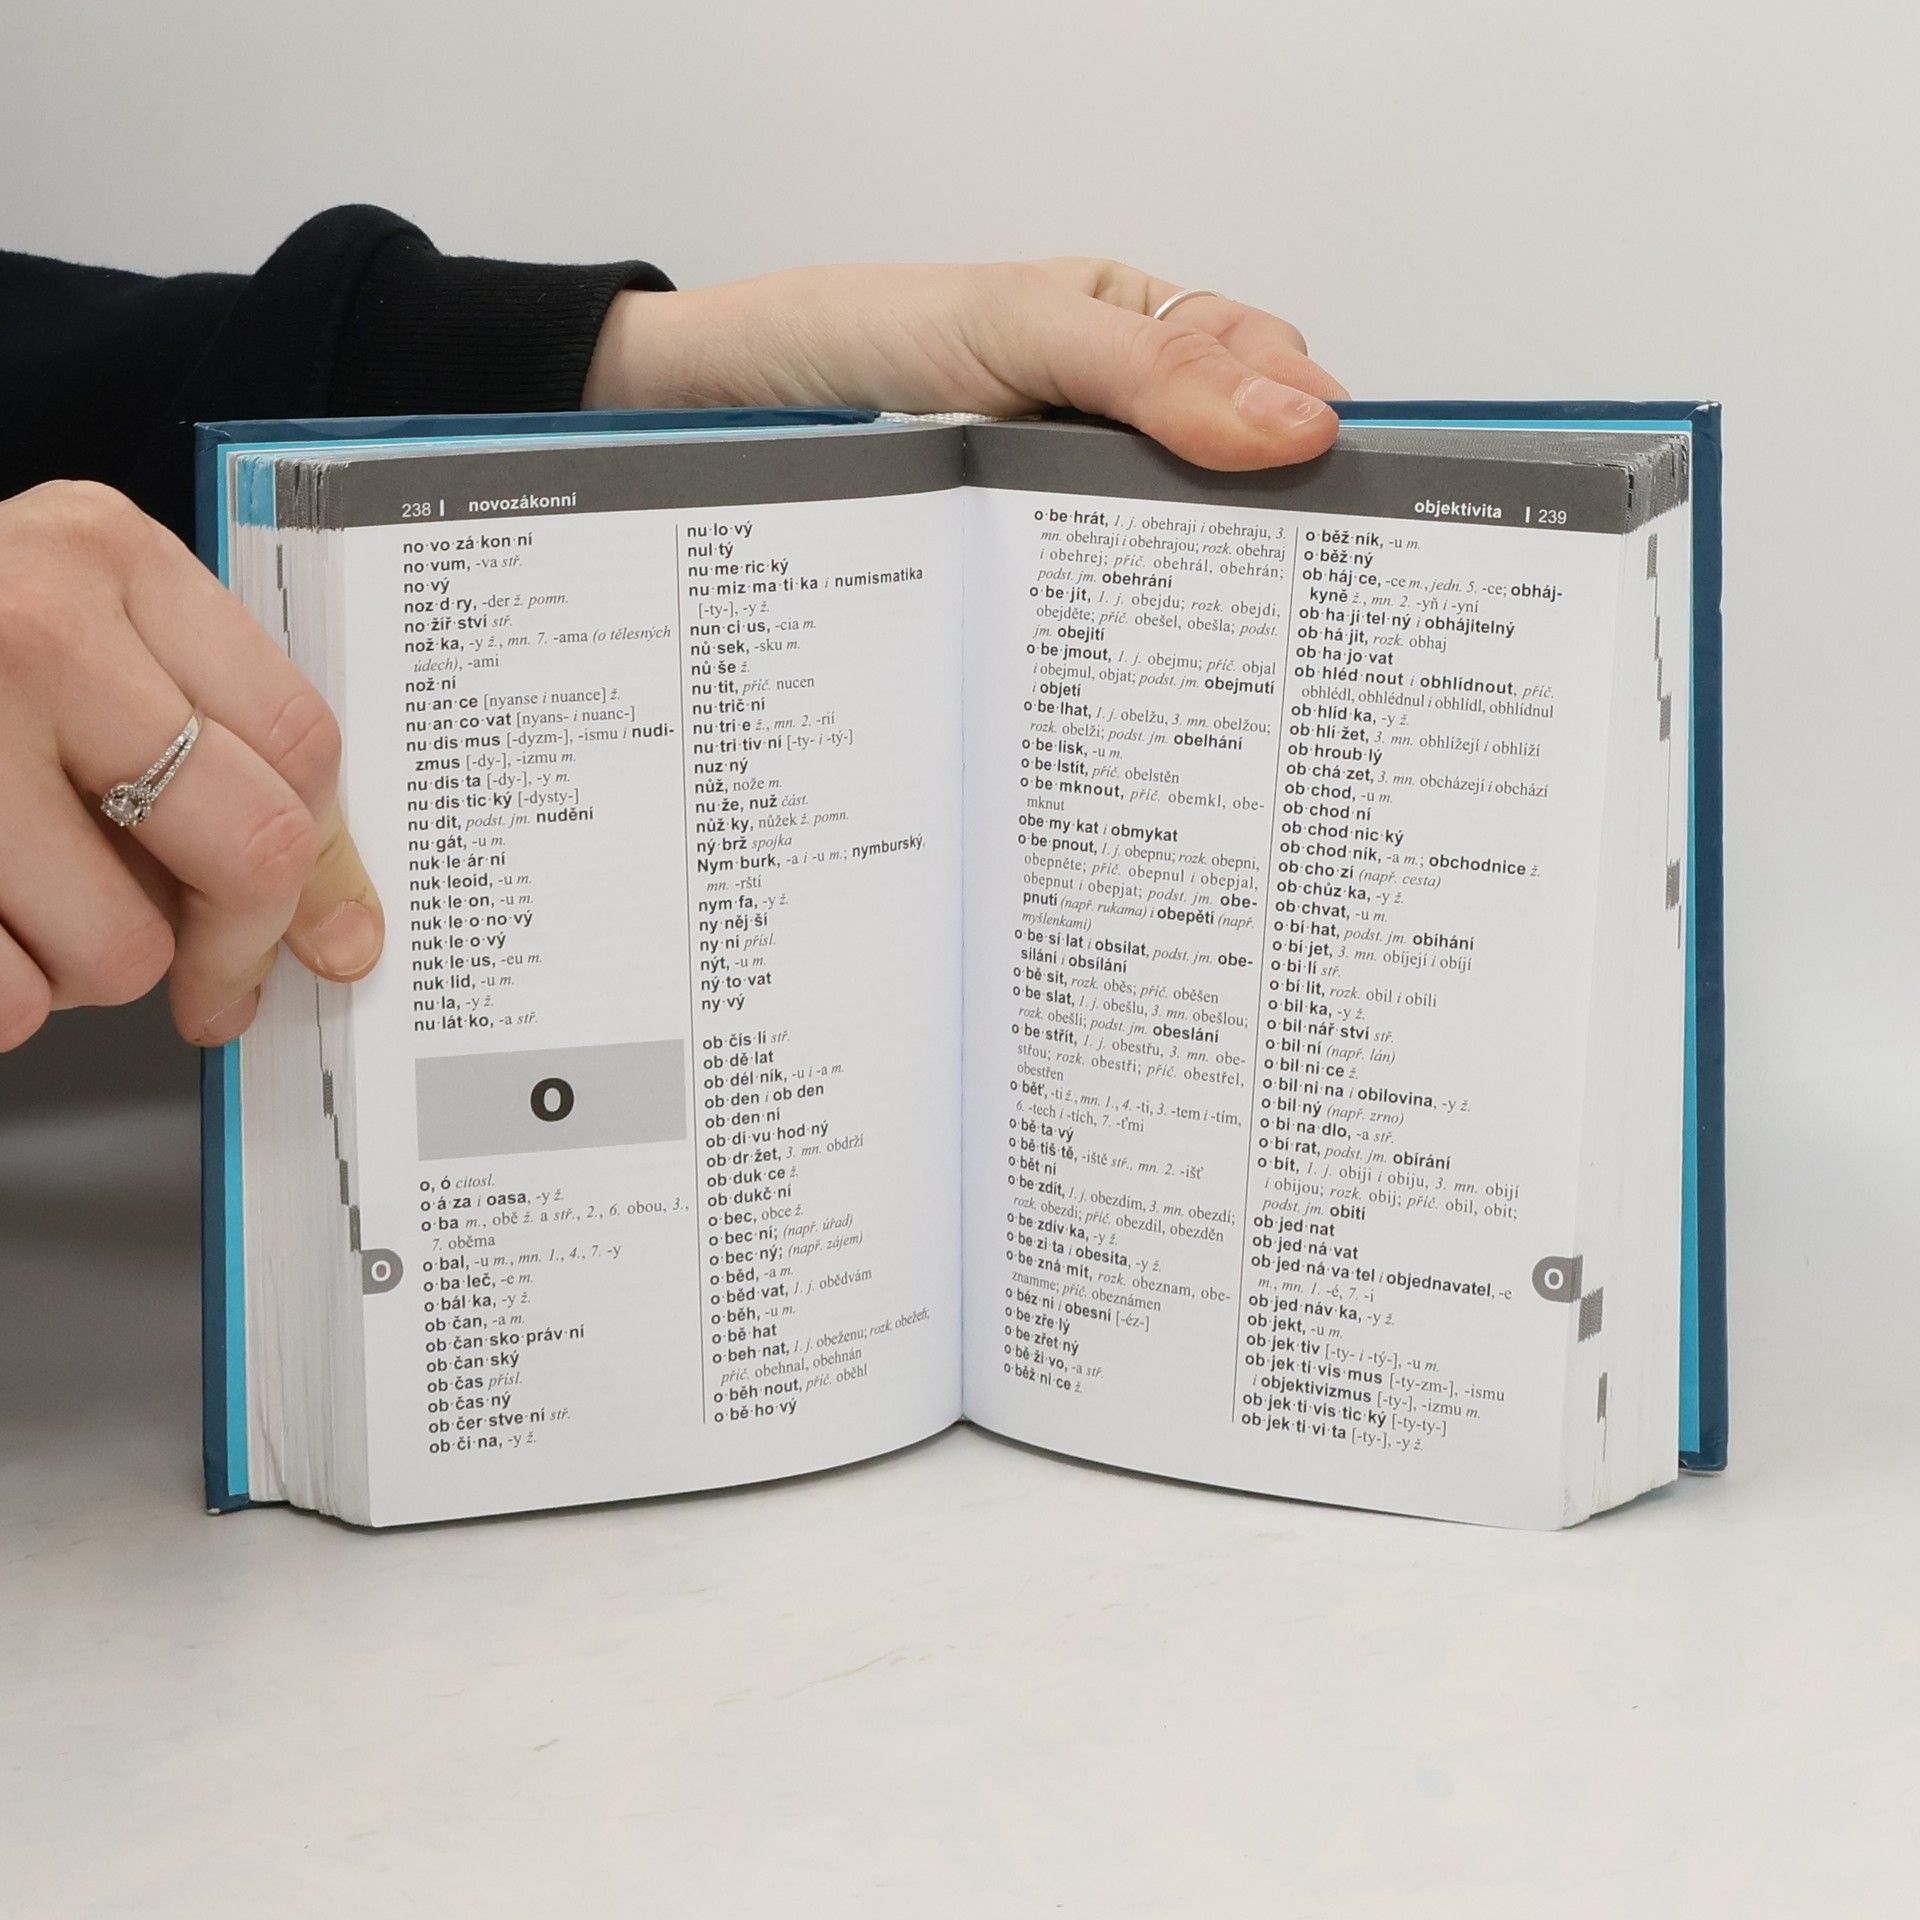 238 | novozákonní
no·vo·zá·kon·ní
no·vum, -va stř.
no·vý
noz·d·ry, -der ž. pomn.
no·žíř·ství stř.
nož·ka, -y ž., mn. 7. -ama (o tělesných
údech), -ami
nož·ní
nu·an·ce [nyanse i nuance] ž.
nu·an·co·vat [nyans- i nuanc-]
nu·dis·mus [-dyzm-], -ismu i nudi-
zmus [-dy-], -izmu m.
nu·dis·ta [-dy-], -y m.
nu·dis·tic·ký [-dysty-]
nu·dit, podst. jm. nudění
nu·gát, -u m.
nuk·le·ár·ní
nuk·leoid, -u m.
nuk·le·on, -u m.
nuk·le·o·no·vý
nuk·le·o·vý
nuk·le·us, -eu m.
nuk·lid, -u m.
nu·la, -y ž.
nu·lát·ko, -a stř.
O
o, ó citosl.
o·á·za i oasa, -y ž.
o·ba m., obě ž. a stř., 2., 6. obou, 3.,
7. oběma
o·bal, -u m., mn. 1., 4., 7. -y
o·ba·leč, -e m.
o·bál·ka, -y ž.
ob·čan, -a m.
ob·čan·sko·práv·ní
ob·čan·ský
ob·čas přísl.
ob·čas·ný
ob·čer·stve·ní stř.
ob·či·na, -y ž.
O
nu·lo·vý
nul·tý
nu·me·ric·ký
nu·miz·ma·ti·ka i numismatika
[-ty-], -y ž.
nun·ci·us, -cia m.
nů·sek, -sku m.
nů·še ž.
nu·tit, příč. nucen
nu·trič·ní
nu·tri·e ž., mn. 2. -rií
nu·tri·tiv·ní [-ty- i -tý-]
nuz·ný
nůž, nože m.
nu·že, nuž část.
nůž·ky, nůžek ž. pomn.
ný·brž spojka
Nym·burk, -a i -u m.; nymburský,
mn. -rští
nym·fa, -y ž.
ny·něj·ší
ny·ní přísl.
nýt, -u m.
ný·to·vat
ny·vý
ob·čís·lí stř.
ob·dě·lat
ob·dél·ník, -u i -a m.
ob·den i ob den
ob·den·ní
ob·di·vu·hod·ný
ob·dr·žet, 3. mn. obdrží
ob·duk·ce ž.
ob·dukč·ní
o·bec, obce ž.
o·bec·ní; (např. úřad)
o·bec·ný; (např. zájem)
o·běd, -a m.
o·běd·vat, 1. j. obědvám
o·běh, -u m.
o·bě·hat
o·beh·nat, 1. j. obeženu; rozk. obežeň;
příč. obehnal, obehnán
o·běh·nout, příč. oběhl
o·bě·ho·vý
objektivita | 239
o·be·hrát, 1. j. obehraji i obehraju, 3.
mn. obehrají i obehrajou; rozk. obehraj
i obehrej; příč. obehrál, obehrán;
podst. jm. obehrání
o·be·jít, 1. j. obejdu; rozk. obejdi,
obejděte; příč. obešel, obešla; podst.
jm. obejití
o·be·jmout, 1. j. obejmu; příč. objal
i obejmul, objat; podst. jm. obejmutí
i objetí
o·be·lhat, 1. j. obelžu, 3. mn. obelžou;
rozk. obelži; podst. jm. obelhání
o·be·lisk, -u m.
o·be·lstít, příč. obelstěn
o·be·mknout, příč. obemkl, obe-
mknut
obe·my·kat i obmykat
o·be·pnout, 1. j. obepnu; rozk. obepni,
obepněte; příč. obepnul i obepjal,
obepnut i obepjat; podst. jm. obe-
pnutí (např. rukama) i obepětí (např.
myšlenkami)
o·be·sí·lat i obsílat, podst. jm. obe-
sílání i obsílání
o·bě·sit, rozk. oběs; příč. oběšen
o·be·slat, 1. j. obešlu, 3. mn. obešlou;
rozk. obešli; podst. jm. obeslání
o·be·střít, 1. j. obestřu, 3. mn. obe-
střou; rozk. obestři; příč. obestřel,
obestřen
o·běť, -ti ž., mn. 1., 4. -ti, 3. -tem i -tím,
6. -tech i -tích, 7. -ťmi
o·bě·ta·vý
o·bě·tiš·tě, -iště stř., mn. 2. -išť
o·bět·ní
o·be·zdít, 1. j. obezdím, 3. mn. obezdí;
rozk. obezdi; příč. obezdil, obezděn
o·be·zdív·ka, -y ž.
o·be·zi·ta i obesita, -y ž.
o·be·zná·mit, rozk. obeznam, obe-
znamme; příč. obeznámen
o·béz·ní i obesní [-éz-]
o·be·zře·lý
o·be·zřet·ný
o·bě·ži·vo, -a stř.
o·běž·ni·ce ž.
o·běž·ník, -u m.
o·běž·ný
ob·háj·ce, -ce m., jedn. 5. -ce; obháj-
kyně ž., mn. 2. -yň i -yní
ob·ha·ji·tel·ný i obhájitelný
ob·há·jit, rozk. obhaj
ob·ha·jo·vat
ob·hléd·nout i obhlídnout, příč.
obhlédl, obhlédnul i obhlídl, obhlídnul
ob·hlíd·ka, -y ž.
ob·hlí·žet, 3. mn. obhlížejí i obhlíží
ob·hroub·lý
ob·chá·zet, 3. mn. obcházejí i obchází
ob·chod, -u m.
ob·chod·ní
ob·chod·nic·ký
ob·chod·ník, -a m.; obchodnice ž.
ob·cho·zí (např. cesta)
ob·chůz·ka, -y ž.
ob·chvat, -u m.
o·bí·hat, podst. jm. obíhání
o·bí·jet, 3. mn. obíjejí i obíjí
o·bi·lí stř.
o·bí·lit, rozk. obil i obíli
o·bil·ka, -y ž.
o·bil·nář·ství stř.
o·bil·ní (např. lán)
o·bil·ni·ce ž.
o·bil·ni·na i obilovina, -y ž.
o·bil·ný (např. zrno)
o·bi·na·dlo, -a stř.
o·bí·rat, podst. jm. obírání
o·bít, 1. j. obiji i obiju, 3. mn. obijí
i obijou; rozk. obij; příč. obil, obit;
podst. jm. obití
ob·jed·nat
ob·jed·ná·vat
ob·jed·ná·va·tel i objednavatel, -e
m., mn. 1. -é, 7. -i
ob·jed·náv·ka, -y ž.
ob·jekt, -u m.
ob·jek·tiv [-ty- i -tý-], -u m.
ob·jek·ti·vis·mus [-ty-zm-], -ismu
i objektivizmus [-ty-], -izmu m.
ob·jek·ti·vis·tic·ký [-ty-ty-]
ob·jek·ti·vi·ta [-ty-], -y ž.
O